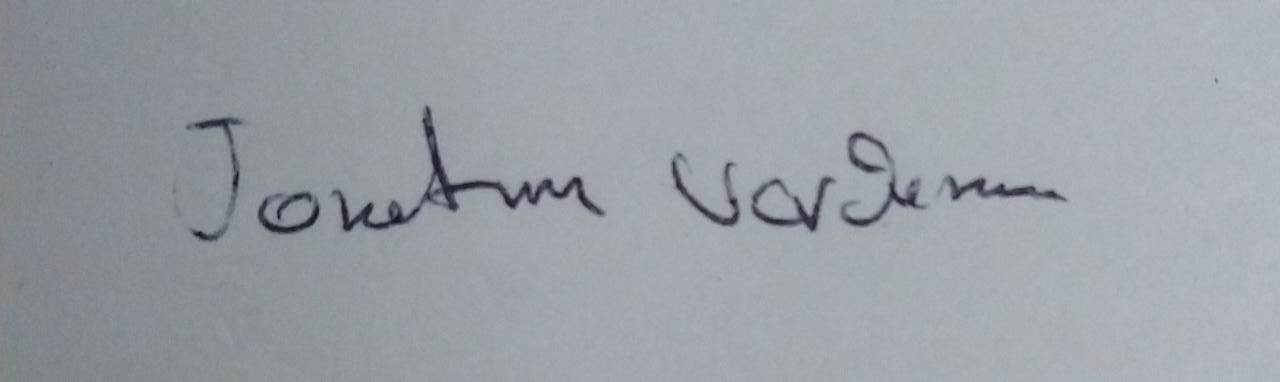 Jonatan Vardeman